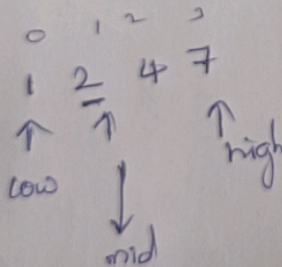 0 1 2 3
1 2 4 7
low
high
mid